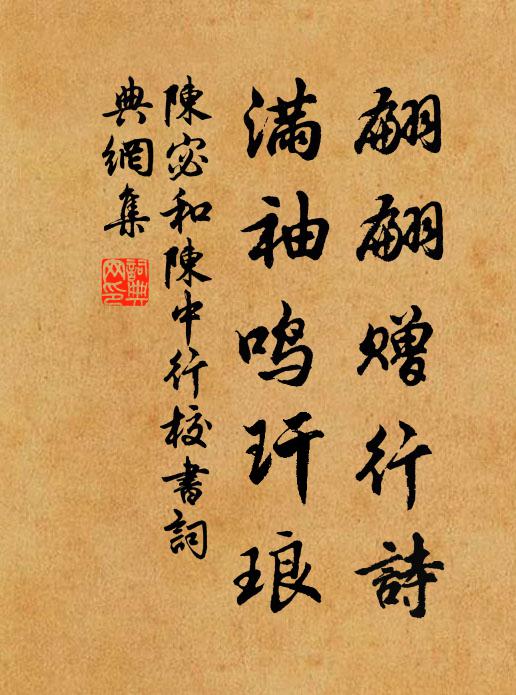 翩翩赠行詩
满袖鸣玕琅
陳宓和陳中行校書詞
典網集
詞典
网印